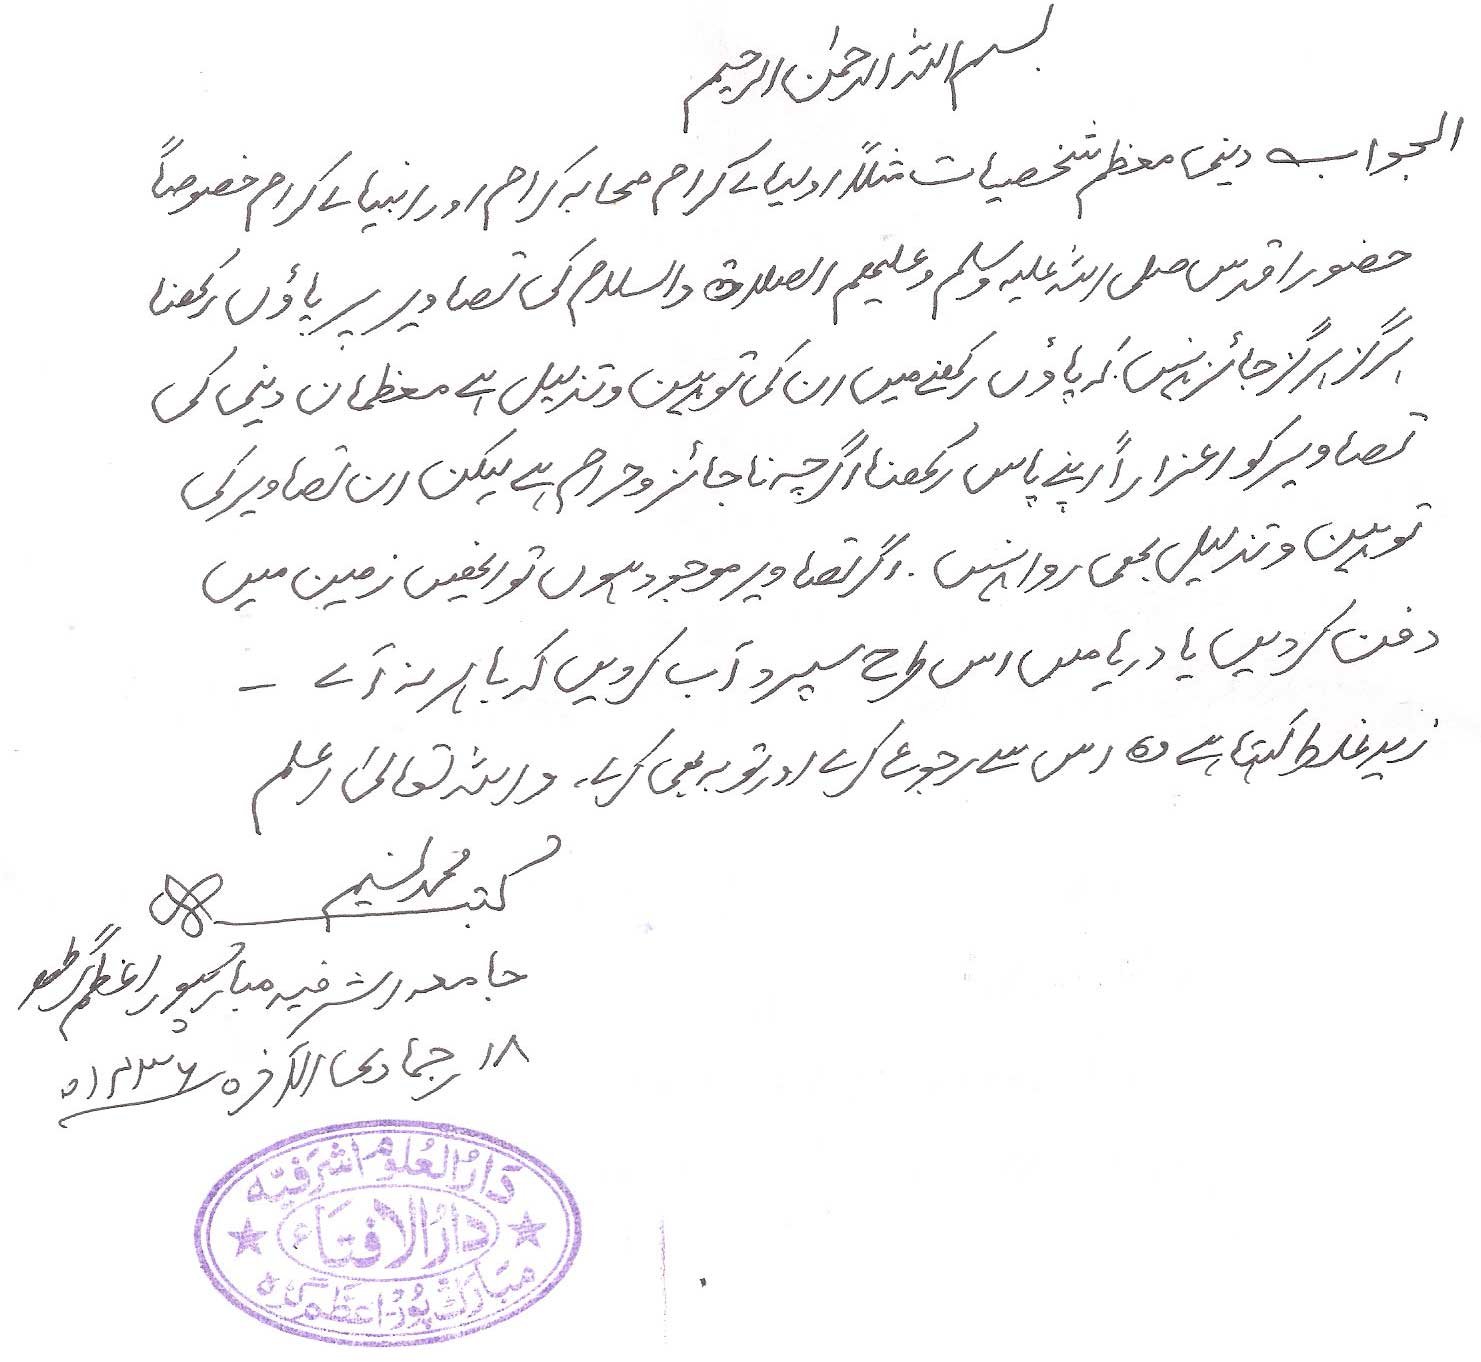 بسم اللہ الرحمٰن الرحیم
الجواب دینی معظم شخصیات مثلاً اولیاے کرام صحابہ کرام اور انبیاے کرام خصوصاً
حضور اقدس صلی اللہ علیہ وسلم وعلیہم الصلاۃ والسلام کی تصاویر پر پاؤں رکھنا
ہرگز ہرگز جائز نہیں۔ کہ پاؤں رکھنے میں ان کی توہین وتذلیل ہے معظمان دینی کی
تصاویر کو اعزازاً اپنے پاس رکھنا اگرچہ ناجائز وحرام ہے لیکن ان تصاویر کی
توہین وتذلیل بھی روا نہیں۔ اگر تصاویر موجود ہوں تو انھیں زمین میں
دفن کردیں یا دریا میں اس طرح سپرد آب کردیں کہ باہر نہ آے ۔
زید غلط کہتا ہے وہ اس سے رجوع کرے اور توبہ بھی کرے۔ واللہ تعالیٰ اعلم
محمد نسیم
کتبہ
جامعہ اشرفیہ مبارکپور اعظم گڑھ
۱۸؍ جمادی الآخرہ ۱۴۳۶ھ
دَارُ العُلوم اشرَفیَہ
دارُ الافتَاء
مُبَارک پُور اعظم گڑہ